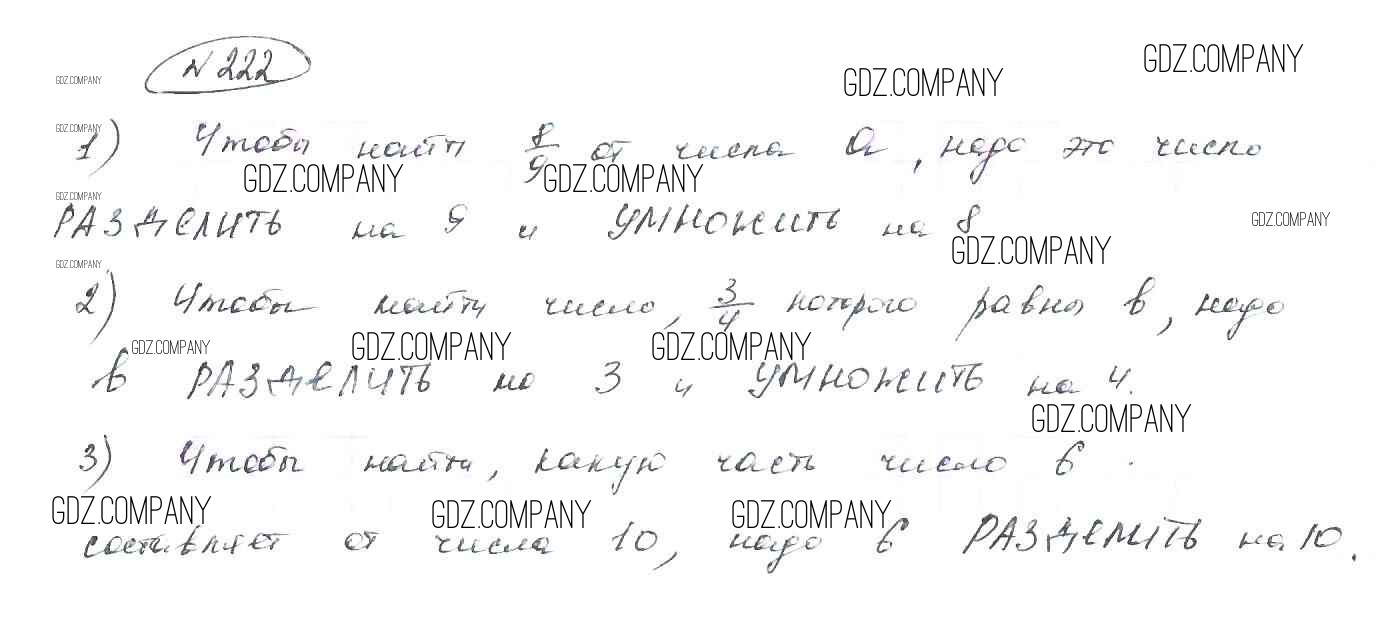 N 222
GDZ.COMPANY
GDZ.COMPANY
GDZ.COMPANY
GDZ.COMPANY
1) Чтобы найти 8/9 от числа a, надо это число
GDZ.COMPANY
GDZ.COMPANY
GDZ.COMPANY
РАЗДЕЛИТЬ на 9 и УМНОЖИТЬ на 8
GDZ.COMPANY
GDZ.COMPANY
GDZ.COMPANY
2) Чтобы найти число, 3/4 которого равны b, надо
GDZ.COMPANY
GDZ.COMPANY
GDZ.COMPANY
b РАЗДЕЛИТЬ на 3 и УМНОЖИТЬ на 4.
GDZ.COMPANY
3) Чтобы найти, какую часть число 6
GDZ.COMPANY
GDZ.COMPANY
GDZ.COMPANY
составляет от числа 10, надо 6 РАЗДЕЛИТЬ на 10.